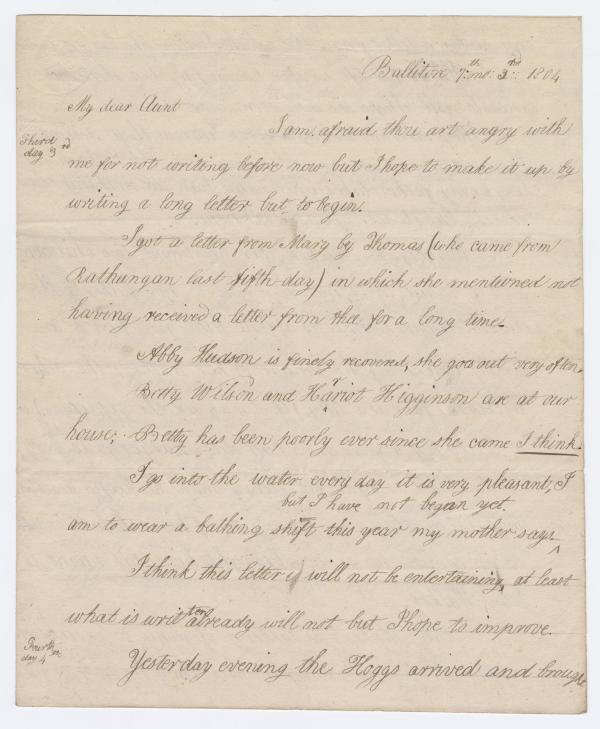 Balliton 7th: mo: 3rd: 1804
My dear Aunt
I am afraid thou art angry with
Third day 3rd
me for not writing before now but I hope to make it up by
writing a long letter but to begin.
I got a letter from Mary by Thomas (who came from
Rathangan last fifth day) in which she mentioned not
having received a letter from thee for a long time.
Abby Hudson is finely recovered, she goes out very often.
Betty Wilson and Harriot Higginson are at our
house; Betty has been poorly ever since she came I think.
I go into the water every day it is very pleasant, I
but I have not began yet.
am to wear a bathing shift this year my mother says ^
I think this letter will not be entertaining, at least
what is written already will not but I hope to improve.
Fourth day 4th
Yesterday evening the Hoggs arrived and brought